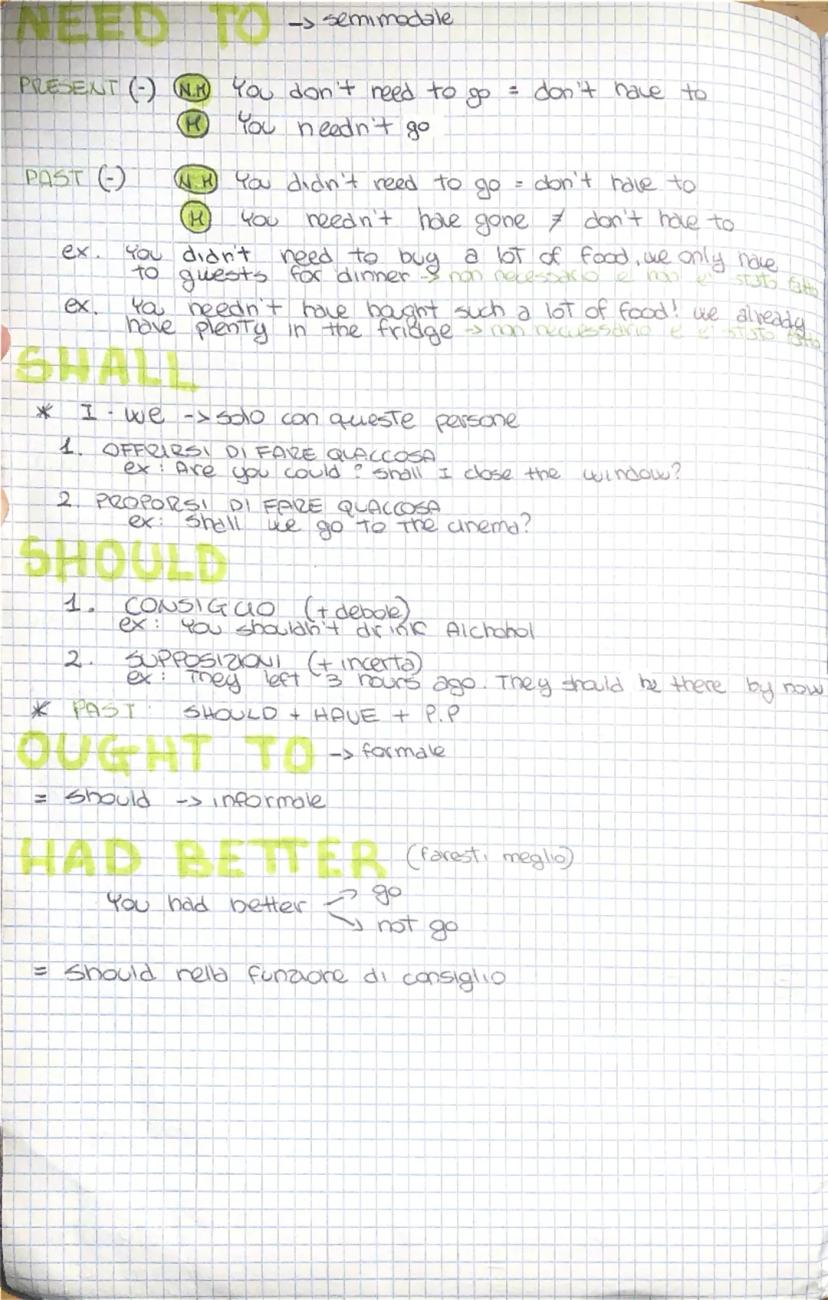 NEED TO -> semimodale
PRESENT (-) N.M You don't need to go = don't have to
M You needn't go
PAST (-) N.M You didn't need to go = don't have to
M You needn't have gone ≠ don't have to
ex. You didn't need to buy a lot of food, we only have
to guests for dinner -> non necessario e non e' stato fatto
ex. You needn't have bought such a lot of food! we already
have plenty in the fridge -> non necessario e e' stato fatto
SHALL
* I - we -> solo con queste persone
1. OFFRIRSI DI FARE QUALCOSA
ex: Are you could? Shall I close the window?
2. PROPORSI DI FARE QUALCOSA
ex: Shall we go to the cinema?
SHOULD
1. CONSIGLIO (+ debole)
ex: You shouldn't drink Alchohol
2. SUPPOSIZIONI (+ incerta)
ex: They left 3 hours ago. They should be there by now
* PAST: SHOULD + HAVE + P.P
OUGHT TO -> formale
= should -> informale
HAD BETTER (faresti meglio)
You had better -> go
-> not go
= should nella funzione di consiglio